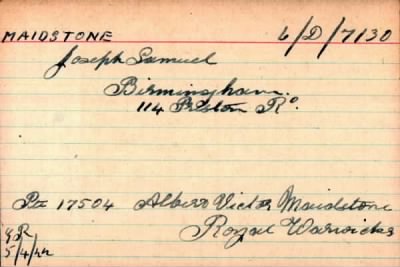 MAIDSTONE 6/D/7130
Joseph Samuel
Birmingham.
114 Preston Rd.
Pte 17504 Albert Victor Maidstone
Royal Warwicks
5/4/22